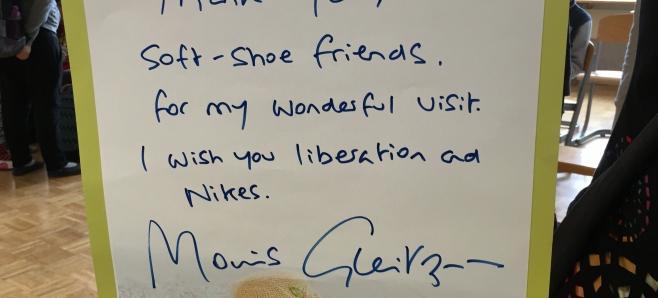 Soft-shoe friends.
for my wonderful visit.
I wish you liberation ad
Nikes.
Morris Gleitz